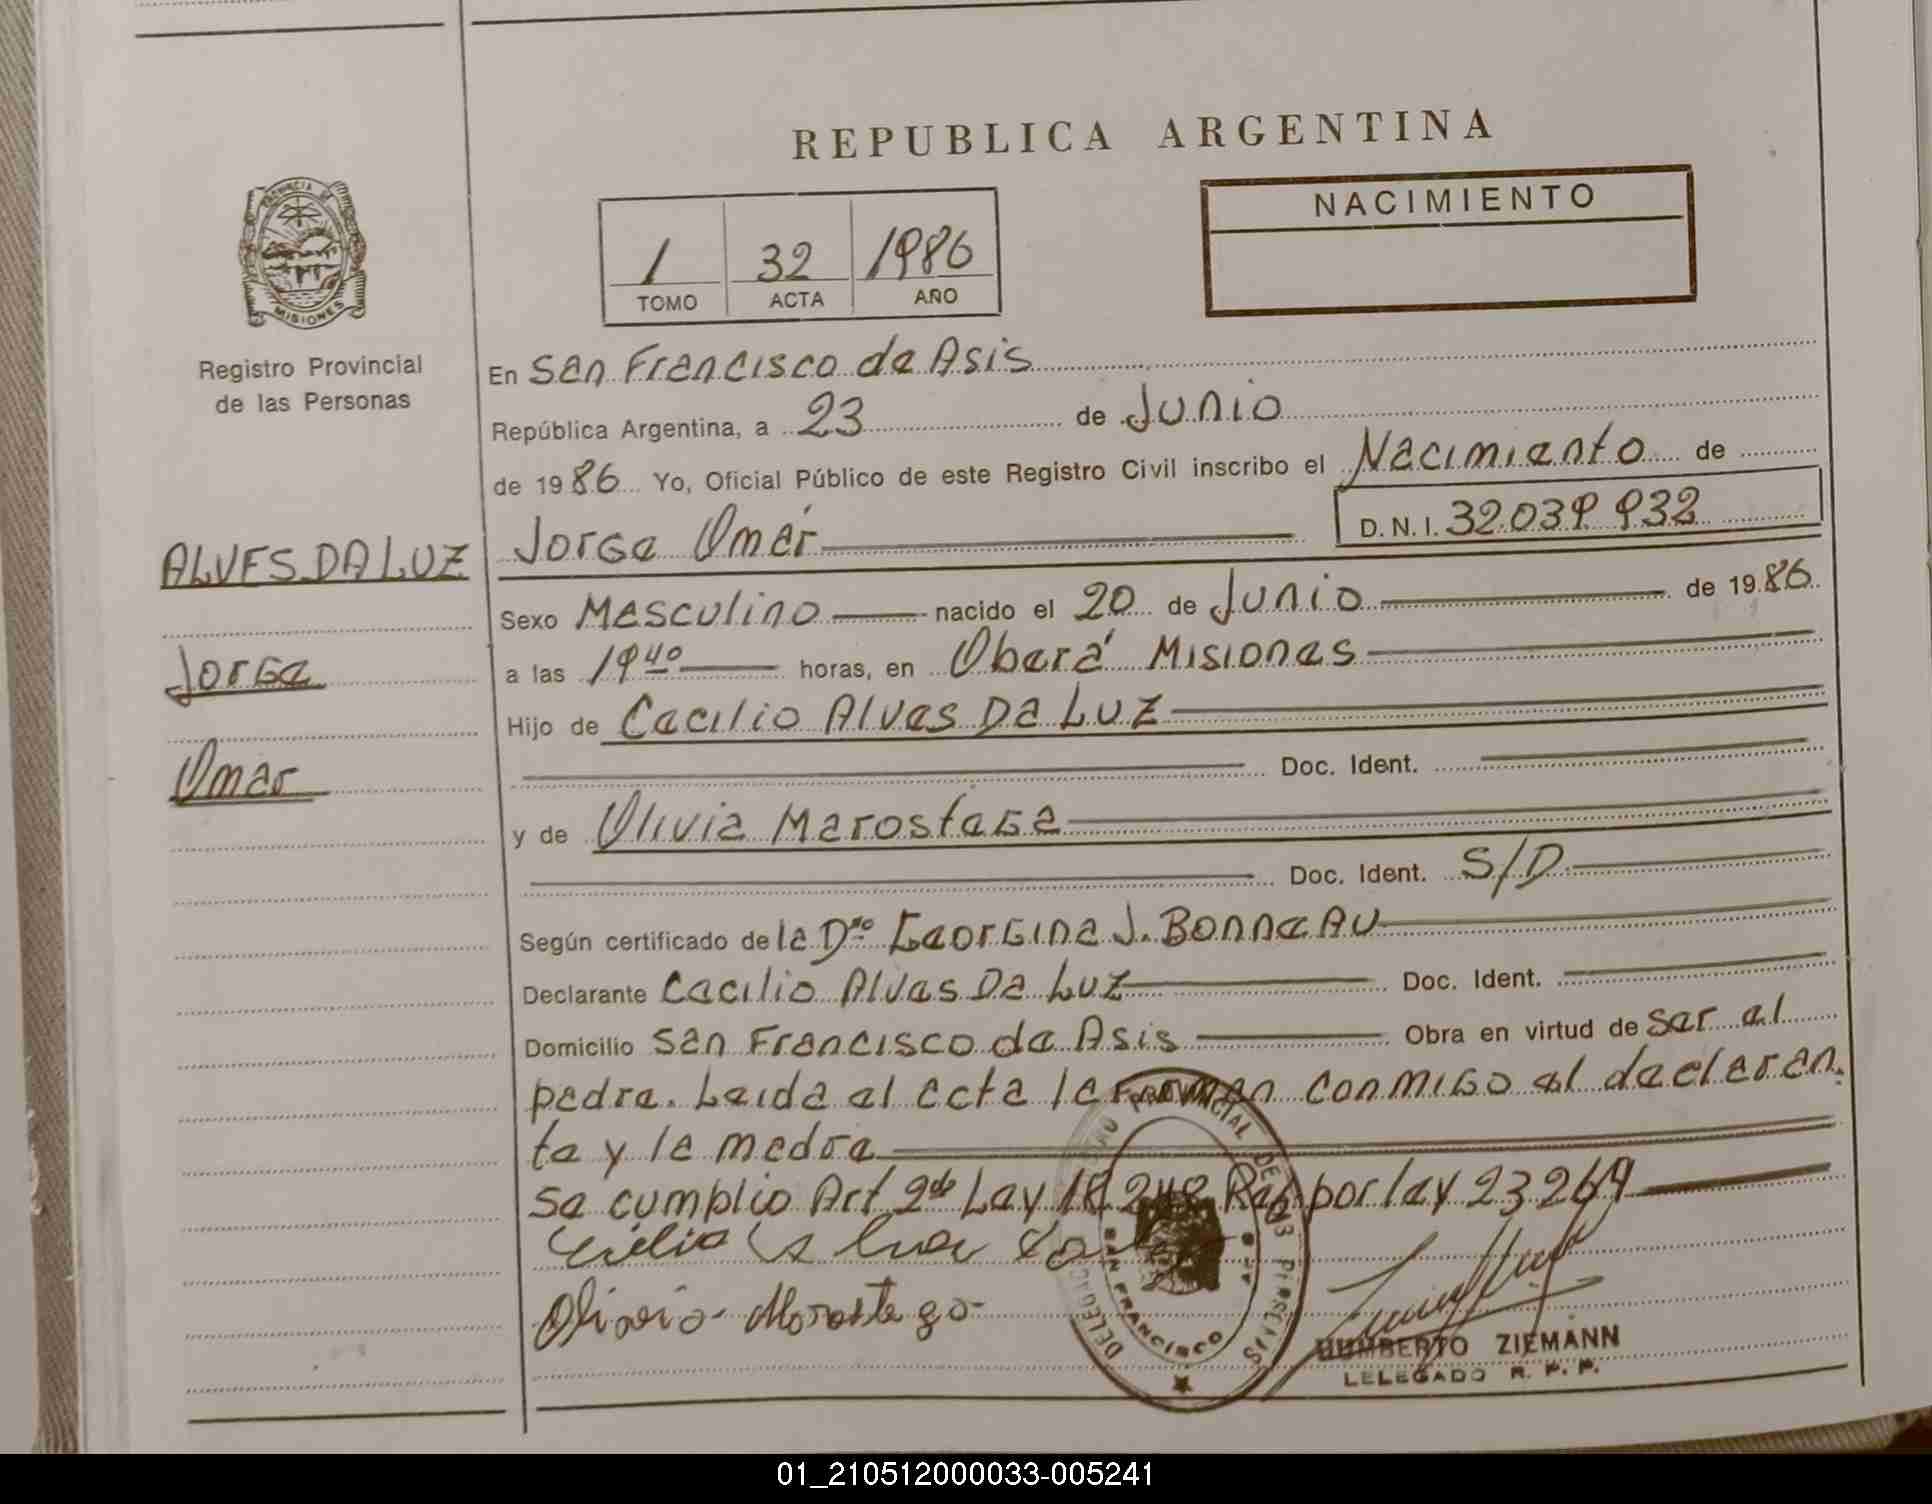 REPUBLICA ARGENTINA
PROVINCIA DE
MISIONES
Registro Provincial
de las Personas
1 32 1986
TOMO ACTA AÑO
NACIMIENTO
En San Francisco de Asis
República Argentina, a 23 de Junio
de 1986 Yo, Oficial Público de este Registro Civil inscribo el Nacimiento de
D.N.I. 32.039.932
ALVES DA LUZ Jorge Omar
Sexo Masculino nacido el 20 de Junio de 1986
Jorge
a las 19 40 horas, en Oberá Misiones
Hijo de Cecilio Alves Da Luz
Omar
Doc. Ident.
y de Olivia Marostega
Doc. Ident. S/D
Según certificado de la Dra Georgina J. Bonneau
Declarante Cecilio Alves Da Luz Doc. Ident.
Domicilio San Francisco de Asis Obra en virtud de ser el
padre. Leida el acta la Firman conmigo el declaran
te y la madre
Se cumplio Art 2do Ley 18.248 por ley 23264
Olivia Marostega
DELEGAC PROVINCIAL DE LAS PERSONAS
SAN FRANCISCO
HUMBERTO ZIEMANN
LELEGADO R. P. P.
01_210512000033-005241